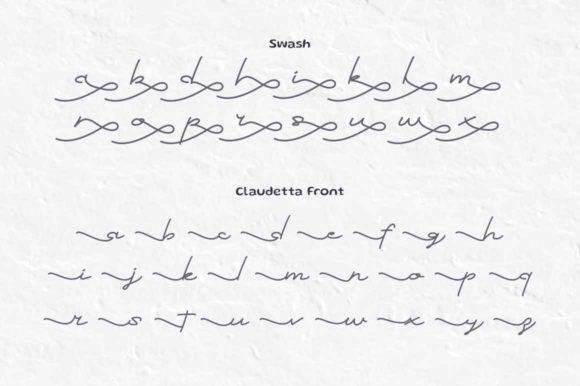 Swash
a k d h i k l m
n o p r s u w x
Claudetta Front
a b c d e f g h
i j k l m n o p q
r s t u v w x y z